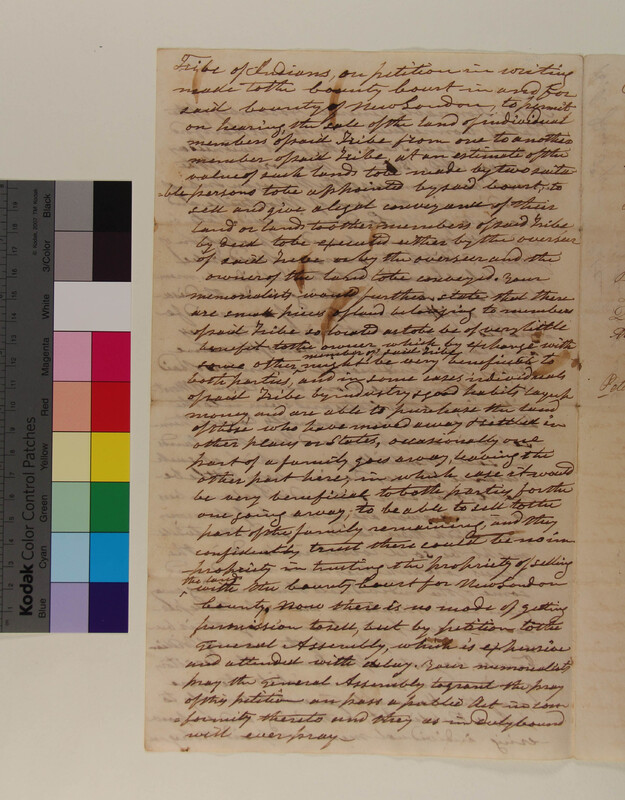 Tribe of Indians, on petition in writing
made to the County Court in and for
said County of New London, to permit
on hearing, the sale of the land of individual
members of said Tribe from one to another
member of said Tribe, at an estimate of the
value of such lands to be made by two suita
-ble persons to be appointed by said Court, to
sell and give a legal conveyance of their
land or lands to other members of said Tribe
by deed to be executed either by the overseer
of said Tribe or by the overseer and the
owner of the land to be conveyed. Your
memorialists would further state that there
are small pieces of land belonging to members
of said Tribe so located as to be of very little
benefit to the owner which by exchange with
member of said Tribe
some other, might be very beneficial to
both parties, and in some cases individuals
of said Tribe by industry & good habits lay up
money and are able to purchase the land
of those who have moved away & settled in
other places or States, occasionally one
part of a family goes away, leaving the
other part here, in which case it would
be very beneficial to both parties, for the
one going away, to be able to sell to the
part of the family remaining, and they
confidently trust there could be no im
propriety in trusting the propriety of selling
the land
with the County Court for New London
County. Now there is no mode of getting
permission to sell, but by petition to the
General Assembly, which is expensive
and attended with delay. Your memorialists
pray the General Assembly to grant the pray
of this petition an pass a public Act in con
formity thereto and they as in Duty bound
will ever pray
Kodak Color Control Patches
Blue
Cyan
Green
Yellow
Red
Magenta
White
3/Color
Black